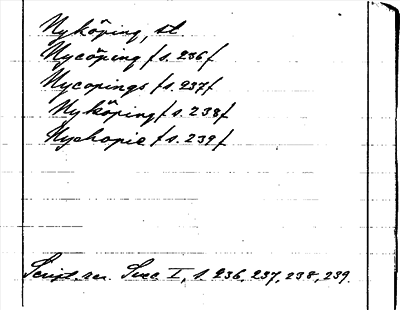 Nyköping, st
Nycöping /s. 236/
Nycopings /s. 237/
Nyköping /s. 238/
Nychopie /s. 239/
Script. rer. Svec I, s. 236, 237, 238, 239.